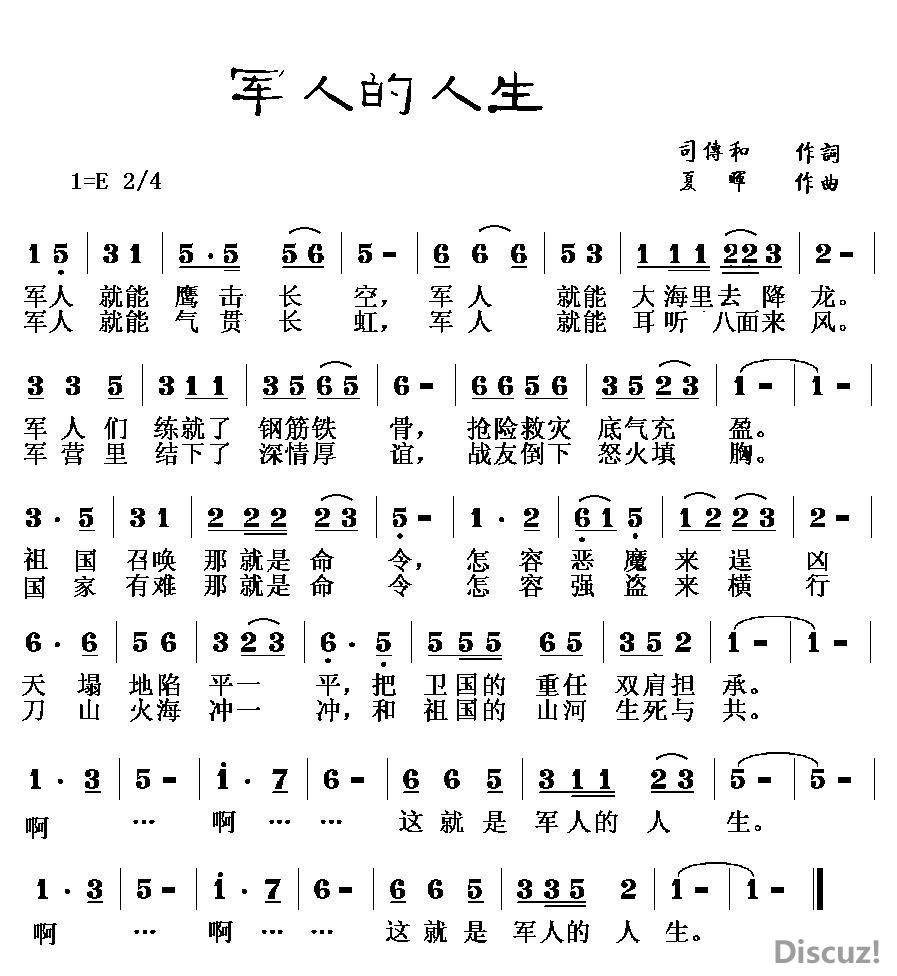 军人的人生
司傳和 作詞
1=E 2/4
夏暉 作曲
1 5 | 3 1 | 5 · 5 5 6 | 5 - | 6 6 6 | 5 3 | 1 1 1 2 2 3 | 2 - |
军人 就能 鹰 击 长 空, 军 人 就能 大海里去 降 龙。
军人 就能 气 贯 长 虹, 军 人 就能 耳听 八面来 风。
3 3 5 | 3 1 1 | 3 5 6 5 | 6 - | 6 6 5 6 | 3 5 2 3 | 1 - | 1 - |
军 人 们 练就了 钢筋铁 骨, 抢险救灾 底气充 盈。
军 营 里 结下了 深情厚 谊, 战友倒下 怒火填 胸。
3 · 5 | 3 1 | 2 2 2 2 3 | 5 - | 1 · 2 | 6 1 5 | 1 2 2 3 | 2 - |
祖 国 召唤 那 就是 命 令, 怎 容 恶 魔 来 逞 凶
国 家 有难 那 就是 命 令 怎 容 强 盗 来 横 行
6 · 6 | 5 6 | 3 2 3 | 6 · 5 | 5 5 5 6 5 | 3 5 2 | 1 - | 1 - |
天 塌 地陷 平一 平, 把 卫国的 重任 双肩担 承。
刀 山 火海 冲一 冲, 和 祖国的 山河 生死与 共。
1 · 3 | 5 - | i · 7 | 6 - | 6 6 5 | 3 1 1 2 3 | 5 - | 5 - |
啊 … 啊 … … 这 就 是 军人的 人 生。
1 · 3 | 5 - | i · 7 | 6 - | 6 6 5 | 3 3 5 2 | 1 - | 1 - ‖
啊 … 啊 … … 这 就 是 军人的 人 生。
Discuz!